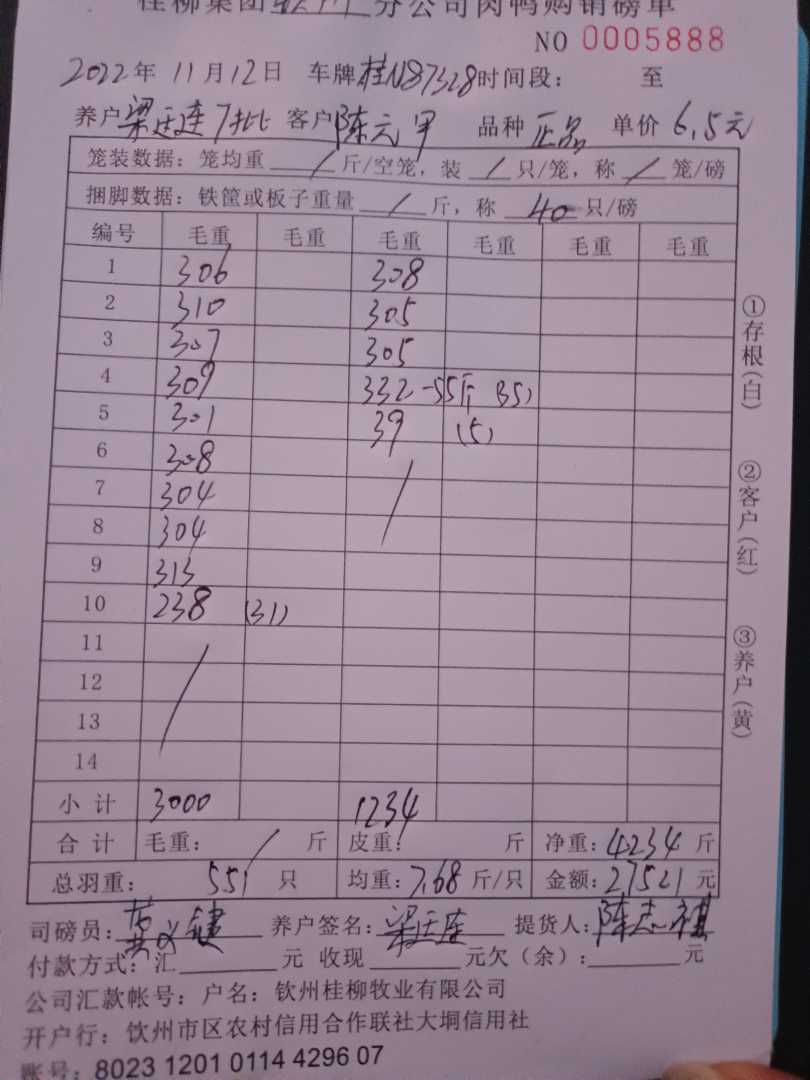 桂柳集团钦州分公司肉鸭购销磅单
NO 0005888
2022年 11月12日 车牌桂N87328时间段： 至
养户梁廷连7批 客户陈元甲 品种 正品 单价 6.5元
笼装数据：笼均重 / 斤/空笼，装 / 只/笼，称 / 笼/磅
捆脚数据：铁筐或板子重量 / 斤，称 40 只/磅
编号 毛重 毛重 毛重 毛重 毛重 毛重
1 306 308
2 310 305
3 307 305
4 309 332-55斤 (35)
5 301 39 (5)
6 308 /
7 304
8 304
9 313
10 238 (31)
11 /
12
13
14
小计 3000 1234
合计 毛重： / 斤 皮重： 斤 净重：4234 斤
总羽重： 551 只 均重：7.68 斤/只 金额：27521 元
司磅员：黄义键 养户签名：梁廷连 提货人：陈志祺
付款方式：汇 元 收现 元欠（余）： 元
公司汇款帐号：户名：钦州桂柳牧业有限公司
开户行：钦州市区农村信用合作联社大垌信用社
账号：8023 1201 0114 4296 07
①存根（白）
②客户（红）
③养户（黄）